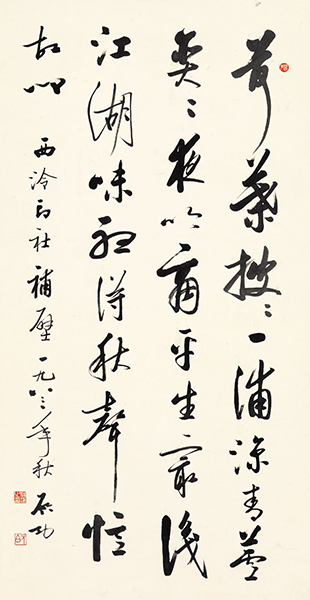 荷葉披〻一浦涼青蘆
奕〻夜吟商平生最識
江湖味聽得秋聲憶
故鄉 西泠印社補壁 一九八三年秋 启功